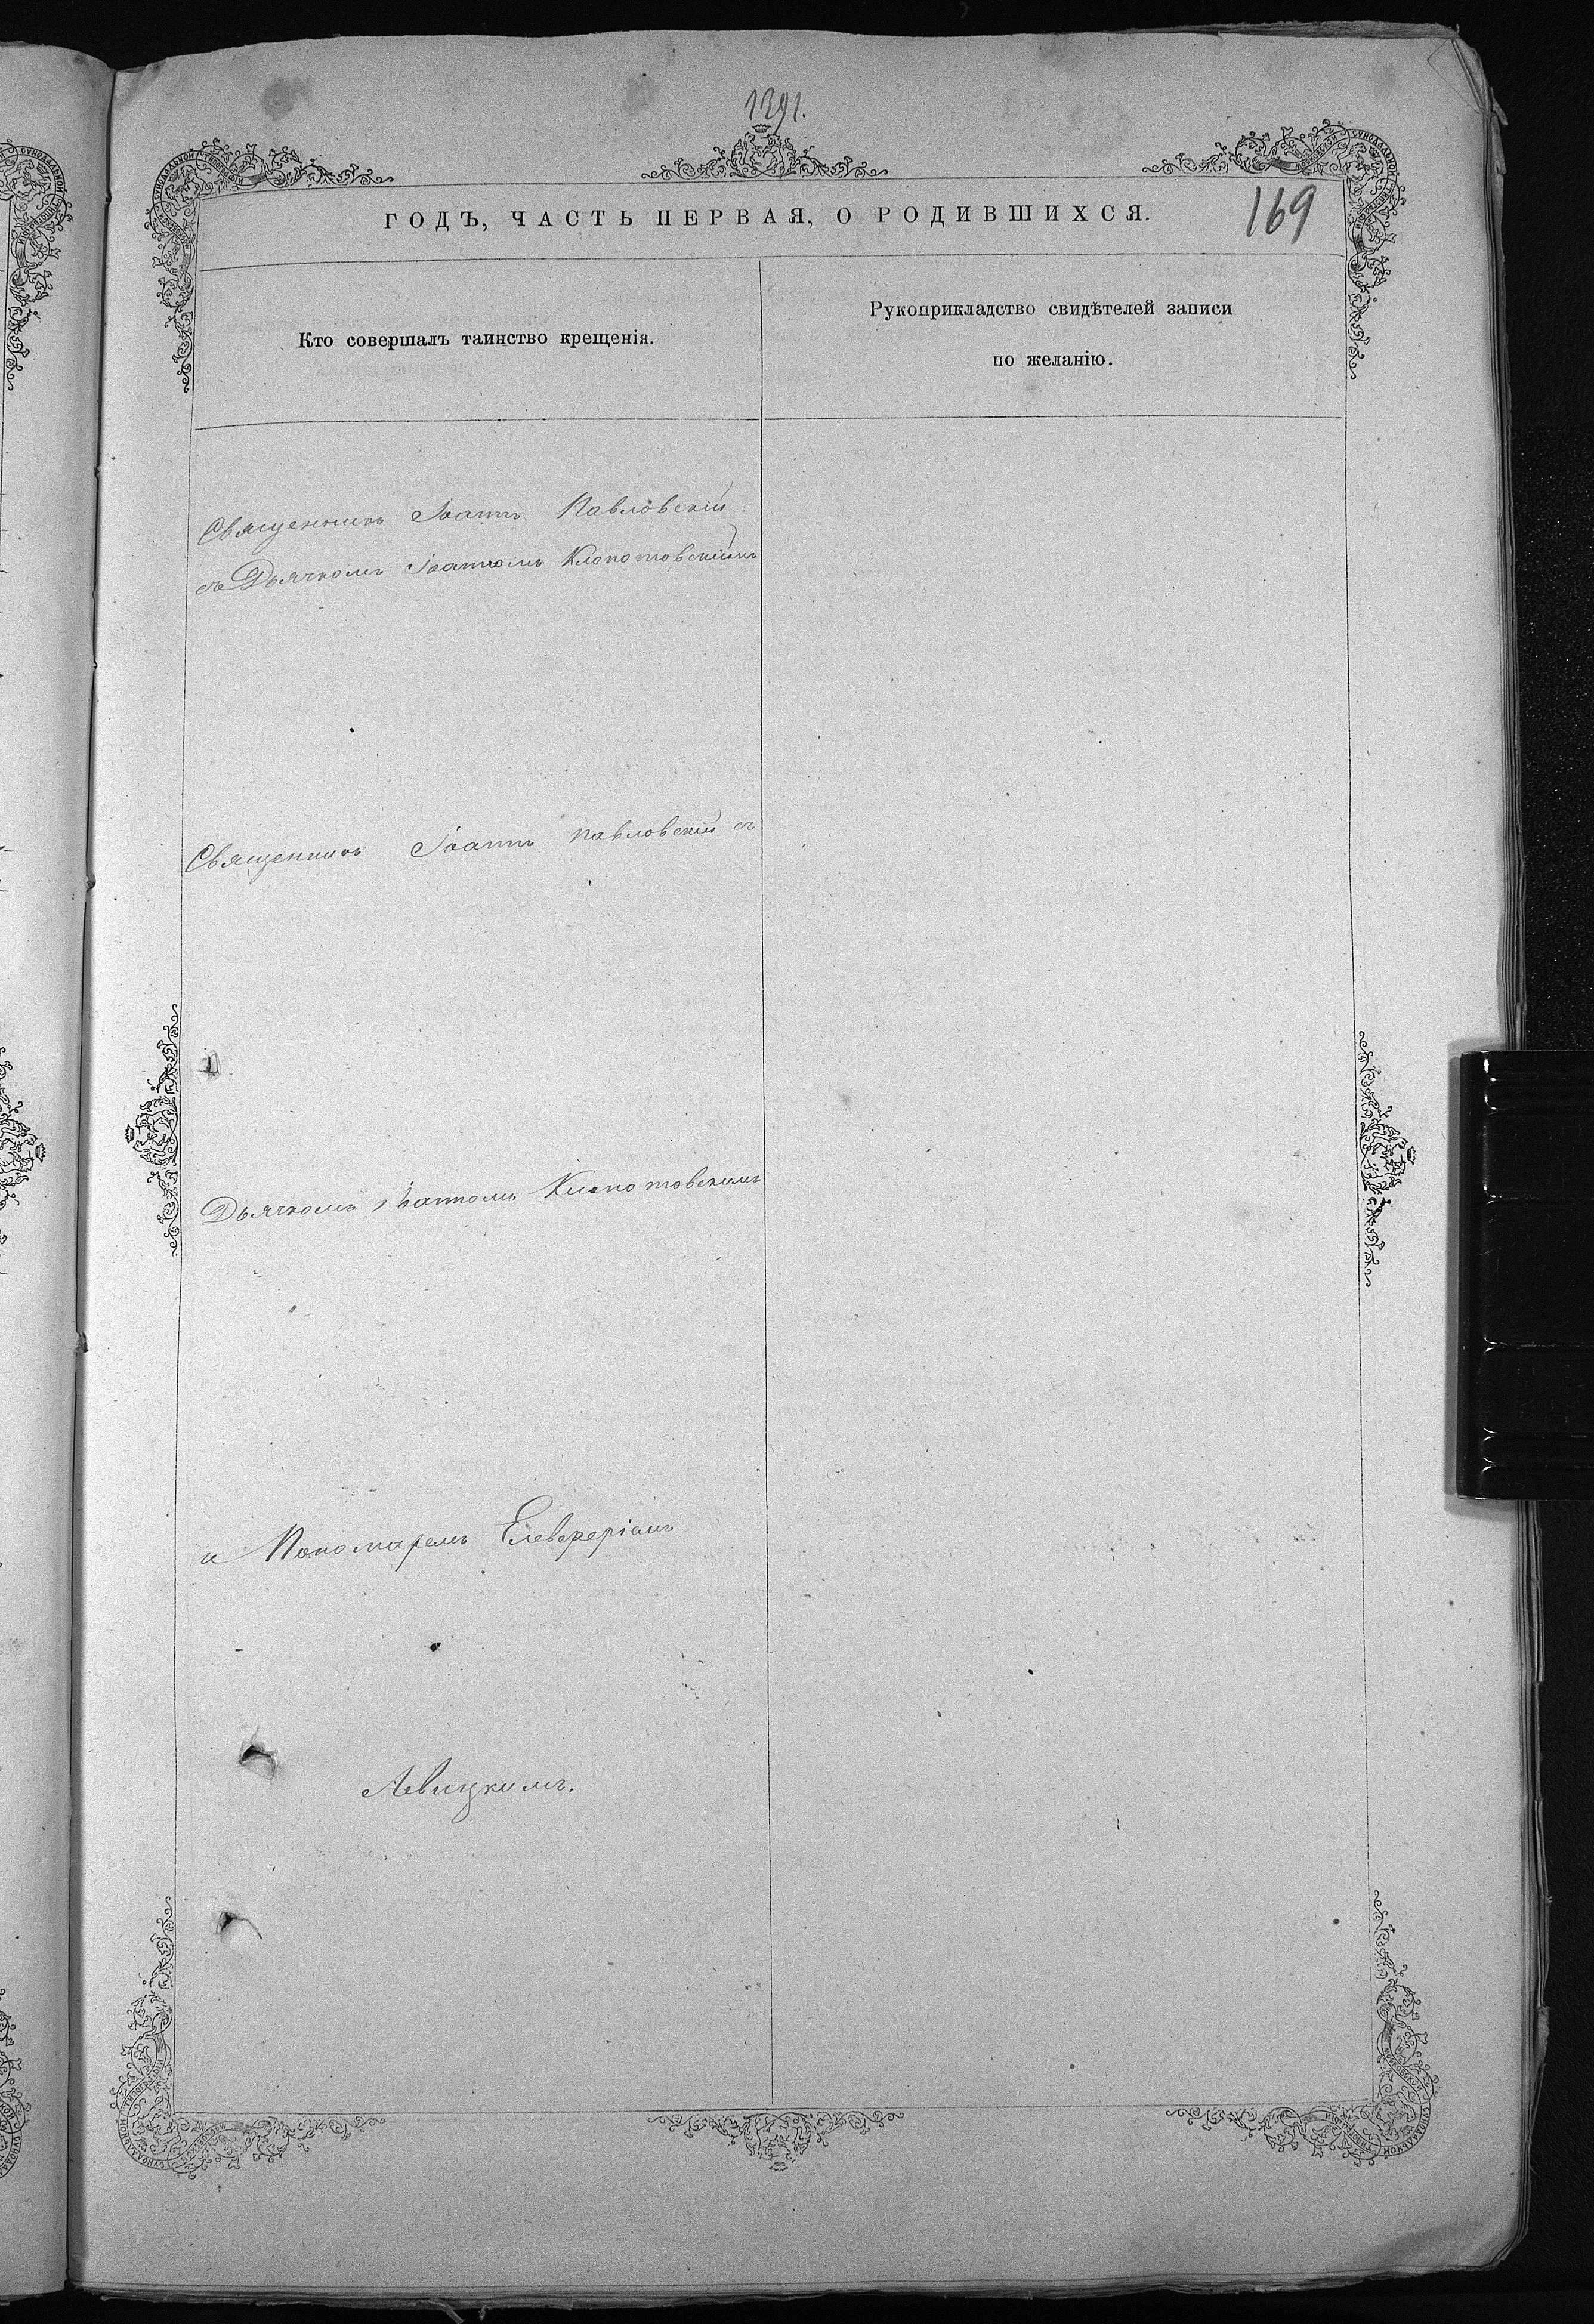 1291.
169
ГОДЪ, ЧАСТЬ ПЕРВАЯ, О РОДИВШИХСЯ.
Кто совершалъ таинство крещенія.
Рукоприкладство свидѣтелей записи
по желанію.
Священникъ Іоаннъ Павловскій
съ Дьячкомъ Іоанномъ Клопотовскимъ
Священникъ Іоаннъ Павловскій съ
Дьячкомъ Іоанномъ Клопотовскимъ
и Пономаремъ Елевѳеріемъ
Левицкимъ.